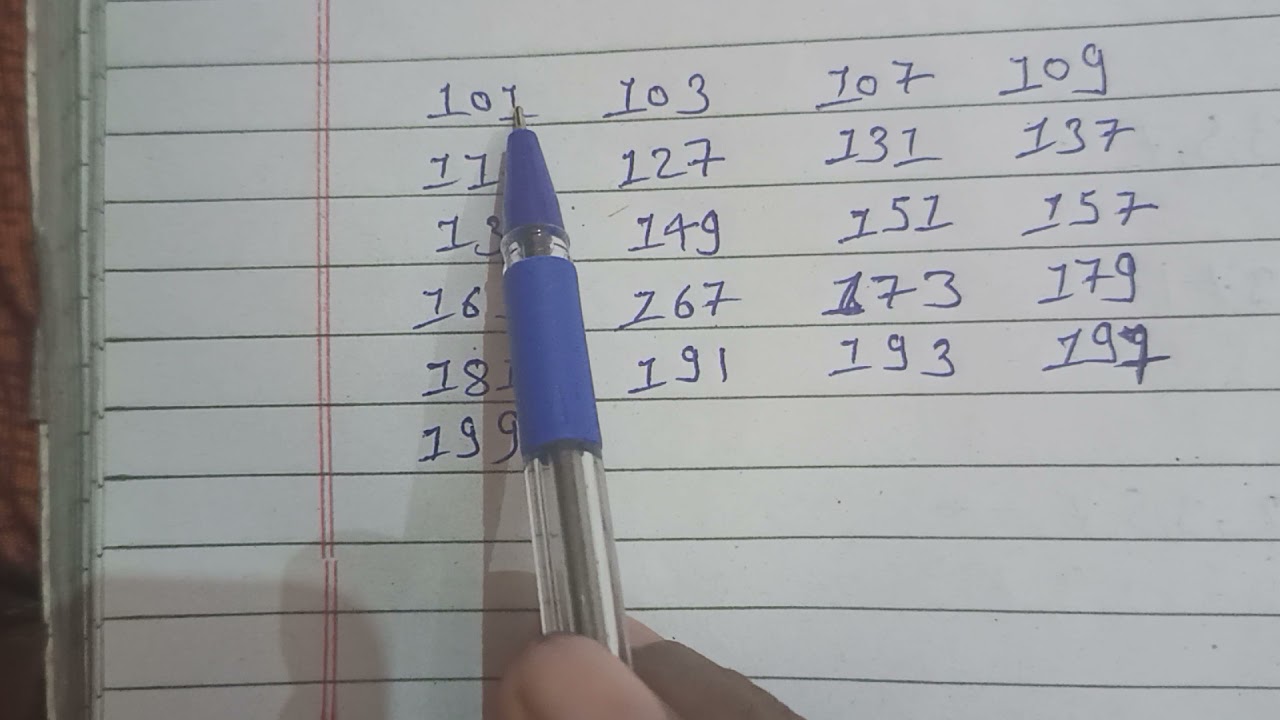 101 103 107 109
127 131 137
149 151 157
167 173 179
181 191 193 197
199